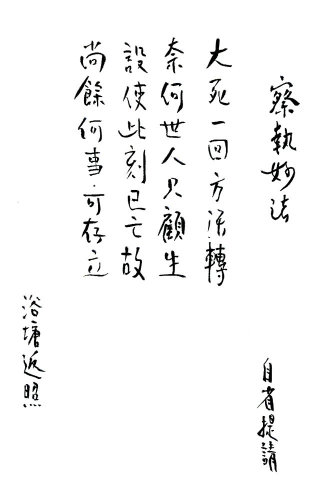 察執妙法
自省提請
大死一回方活轉
奈何世人只顧生
設使此刻已亡故
尚餘何事可存立
浴塘返照